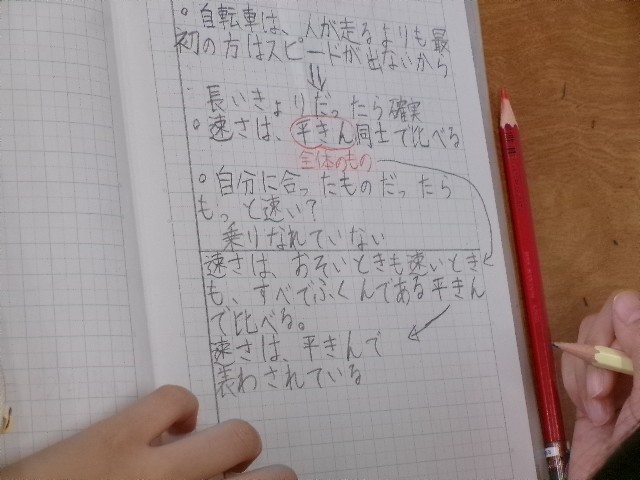 。自転車は、人が走るよりも最
初の方はスピードが出ないから
⇓
長いきょりだったら確実
。速さは、平きん同士で比べる
全体のもの
。自分に合ったものだったら
もっと速い?
乗りなれていない
速さは、おそいときも速いとき
も、すべてふくんである平きん
で比べる。
速さは、平きんで
表わされている